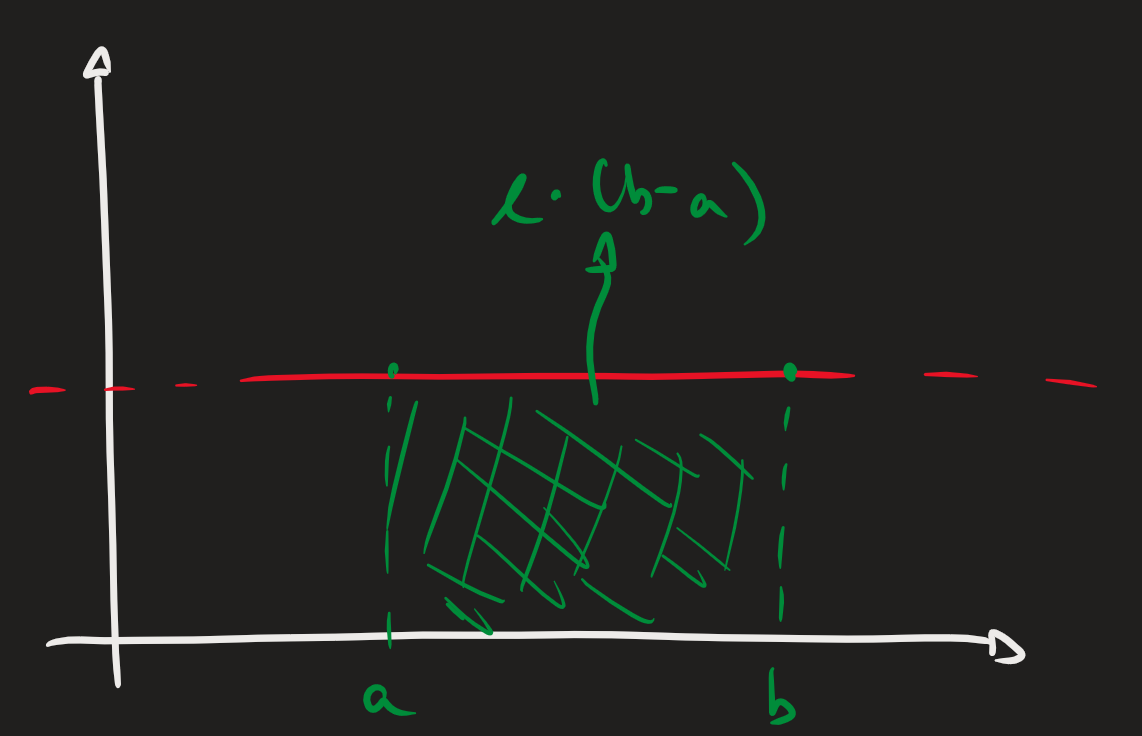 c · (b-a)
a b